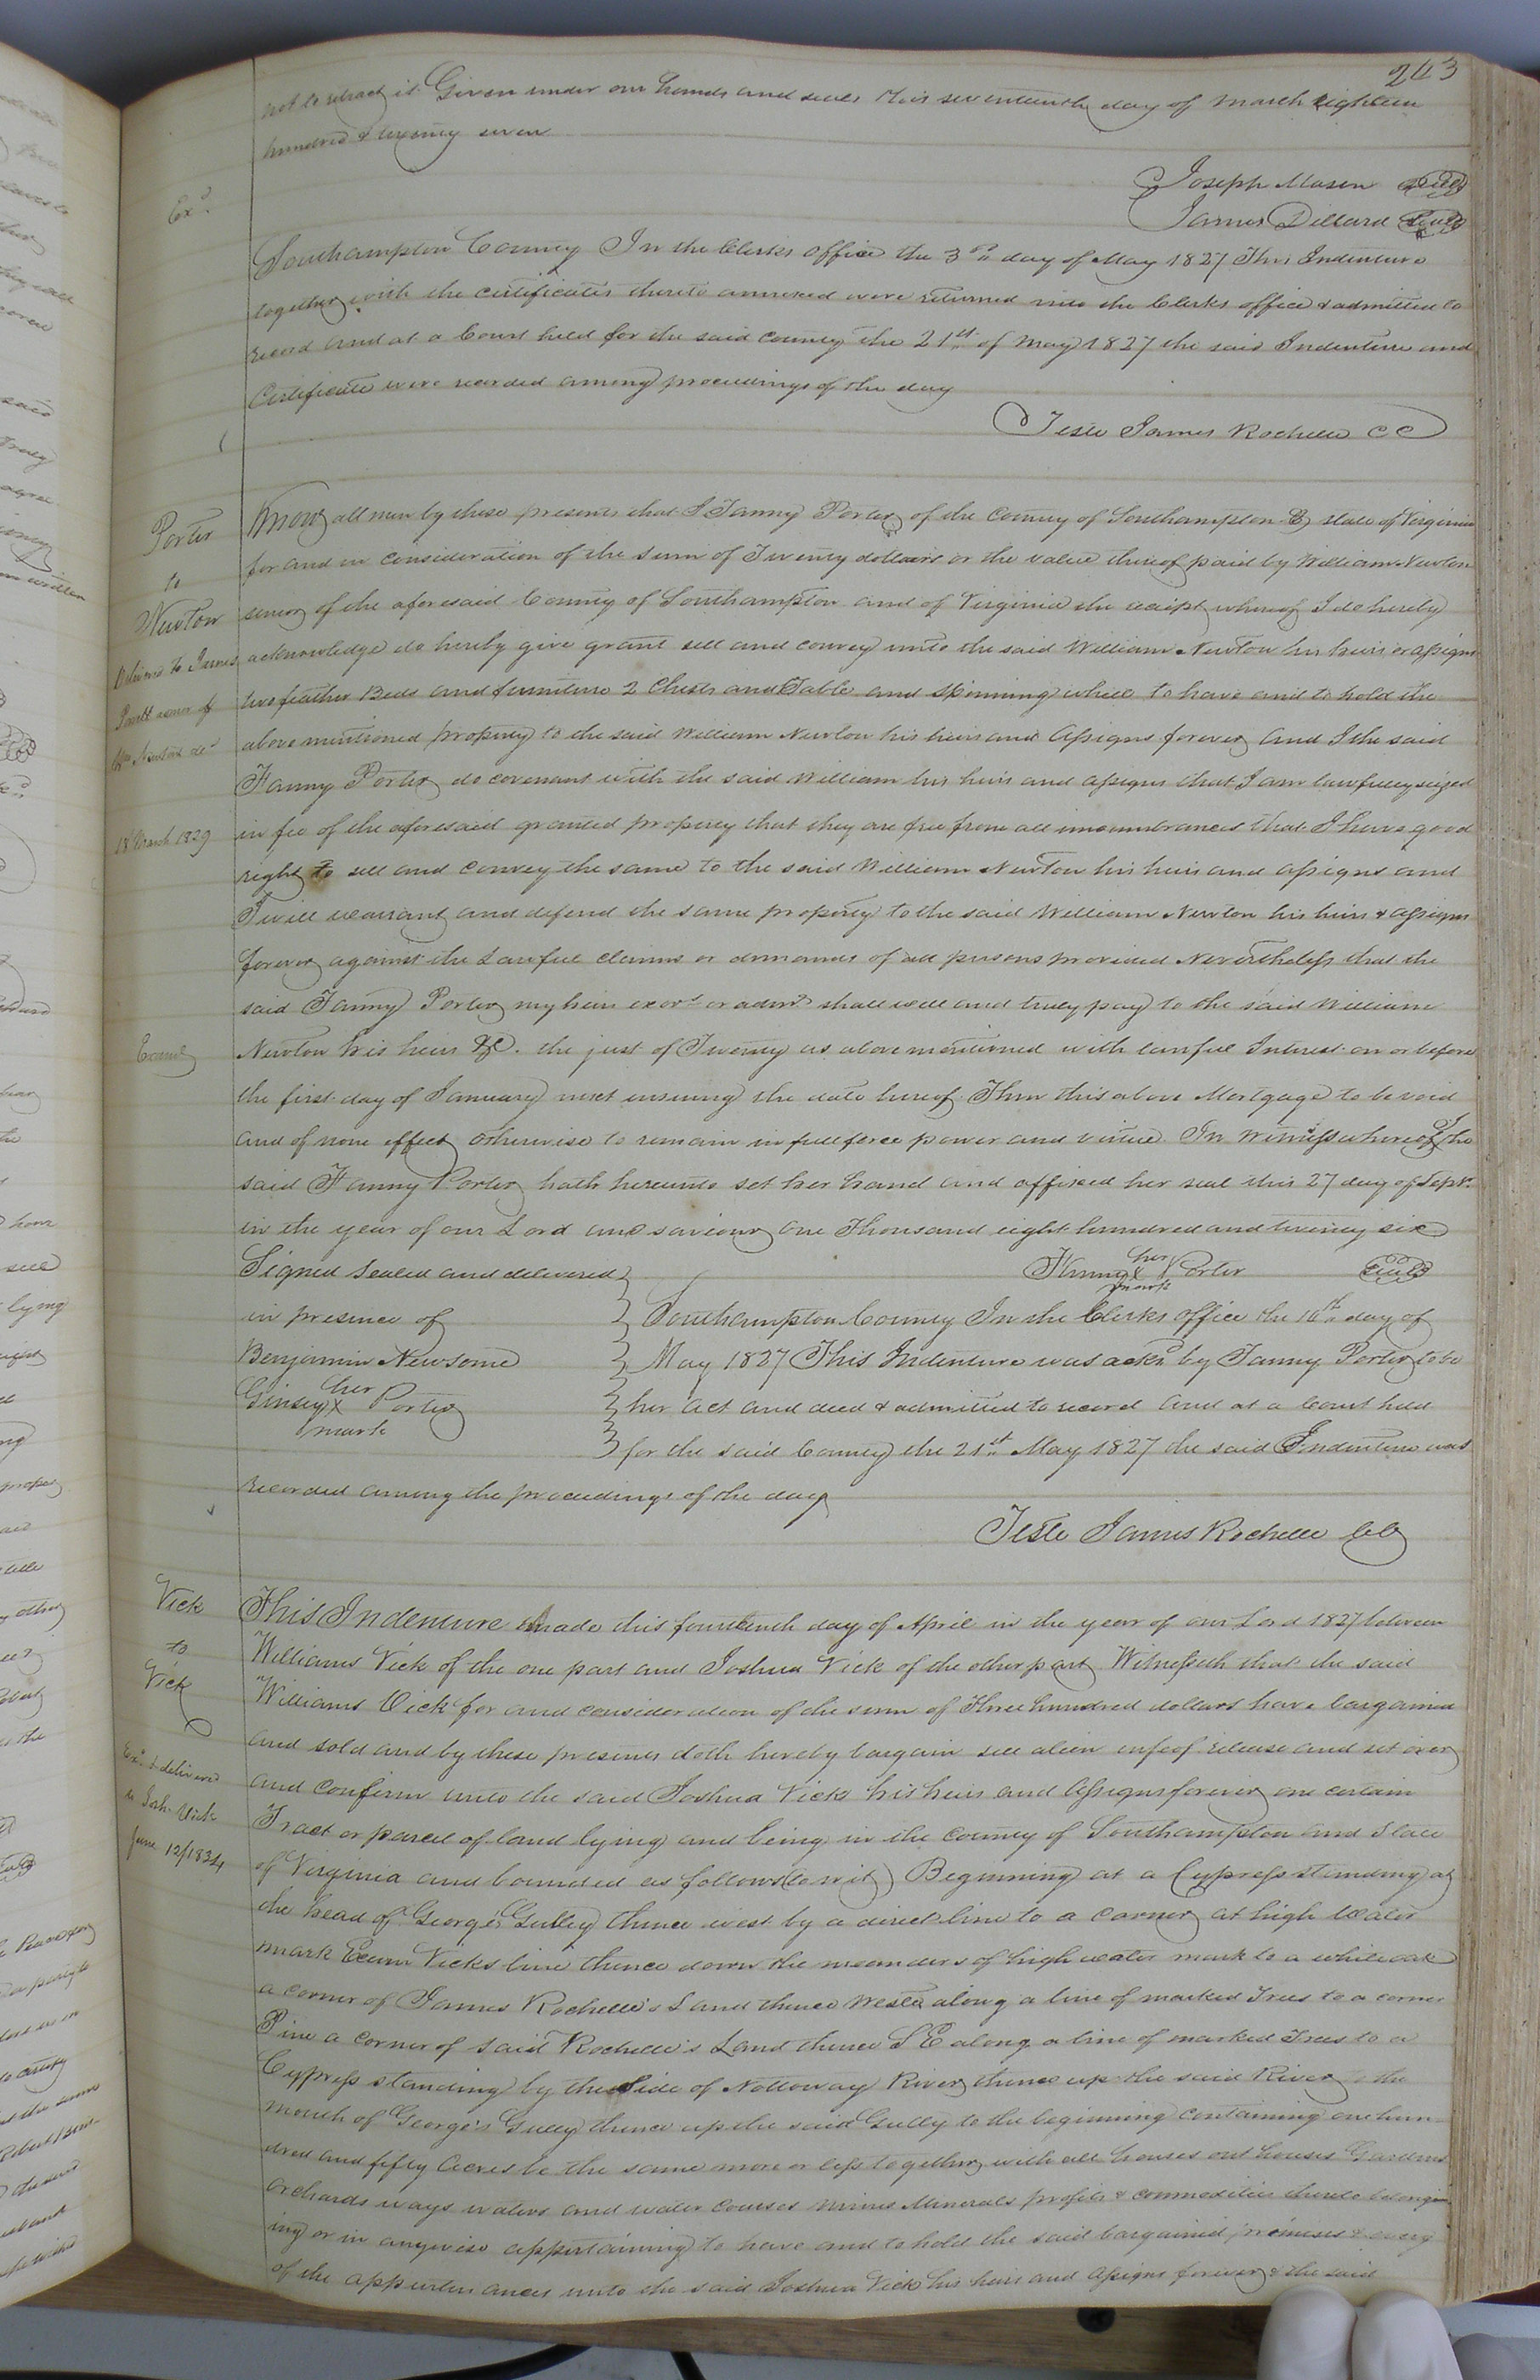 243
not to retract it Given under our hands and seals this seventeenth day of March eighteen
hundred & twenty seven
Joseph Mason Seal
James Dillard Seal
Exd.
Southampton County In the Clerks office the 3rd day of May 1827 This Indenture
together with the certificates thereto annexed were returned into the Clerks office & admitted to
record and at a Court held for the said county the 21st of May 1827 the said Indenture and
Certificate were recorded among proceedings of the day
Teste James Rochelle CC
Porter
to
Newton
Delivered to James
exor of
Wm Newton decd
18 March 1829
Know all men by these presents that I Fanny Porter of the County of Southampton & state of Virginia
for and in consideration of the sum of Twenty dollars or the value thereof paid by William Newton
senior of the aforesaid County of Southampton and of Virginia the receipt whereof I do hereby
acknowledge do hereby give grant sell and convey unto the said William Newton his heirs or assigns
two feather Beds and furniture 2 Chests and Table and spinning wheel to have and to hold the
above mentioned property to the said William Newton his heirs and assigns forever and I the said
Fanny Porter do covenant with the said William his heirs and assigns that I am lawfully seized
in fee of the aforesaid granted property that they are free from all incumbrances that I have good
right to sell and convey the same to the said William Newton his heirs and assigns and
I will warrant and defend the same property to the said William Newton his heirs & assigns
forever against the Lawful claims or demands of all persons provided Nevertheless that the
said Fanny Porter my heirs exors or admrs shall well and truly pay to the said William
Examd
Newton his heirs &c. the just of Twenty as above mentioned with lawful Interest on or before
the first day of January next ensuing the date hereof Then this above Mortgage to be void
and of none effect otherwise to remain in full force power and virtue In witness whereof I the
said Fanny Porter hath hereunto set her hand and affixed her seal this 27 day of Sept.
in the year of our Lord and saviour one Thousand eight hundred and twenty six
Signed Sealed and delivered
in presence of
Benjamin Newsome
Ginsey her X mark Porter
Fanny her X mark Porter Seal
Southampton County In the Clerks Office the 16th day of
May 1827 This Indenture was ackd by Fanny Porter to be
her act and deed & admitted to record and at a Court held
for the said County the 21st May 1827 the said Indenture was
recorded among the proceedings of the day
Teste James Rochelle CC
Vick
to
Vick
Exd & delivered
to Josh. Vick
June 12/1834
This Indenture Made this fourteenth day of April in the year of our Lord 1827 between
Williams Vick of the one part and Joshua Vick of the other part Witnesseth that the said
Williams Vick for and consideration of the sum of Three hundred dollars have bargained
and sold and by these presents doth hereby bargain sell alien enfeof release and set over
and confirm unto the said Joshua Vick his heirs and assigns forever one certain
Tract or parcel of land lying and being in the County of Southampton and State
of Virginia and bounded as follows (to wit) Beginning at a Cypress standing at
the head of George's Gulley thence west by a direct line to a corner at high water
mark Exum Vicks line thence down the meanders of high water mark to a white oak
a corner of James Rochelle's Land thence West along a line of marked Trees to a corner
Pine a corner of said Rochelle's Land thence S E along a line of marked Trees to a
Cypress standing by the Side of Nottoway River thence up the said River to the
mouth of George's Gulley thence up the said Gully to the beginning containing one hun
dred and fifty Acres be the same more or less together with all houses out houses Gardens
orchards ways waters and water Courses mines Minerals profits & commodities thereto belong
ing or in anywise appertaining to have and to hold the said bargained premises & every
of the appurtenances unto the said Joshua Vick his heirs and assigns forever & the said